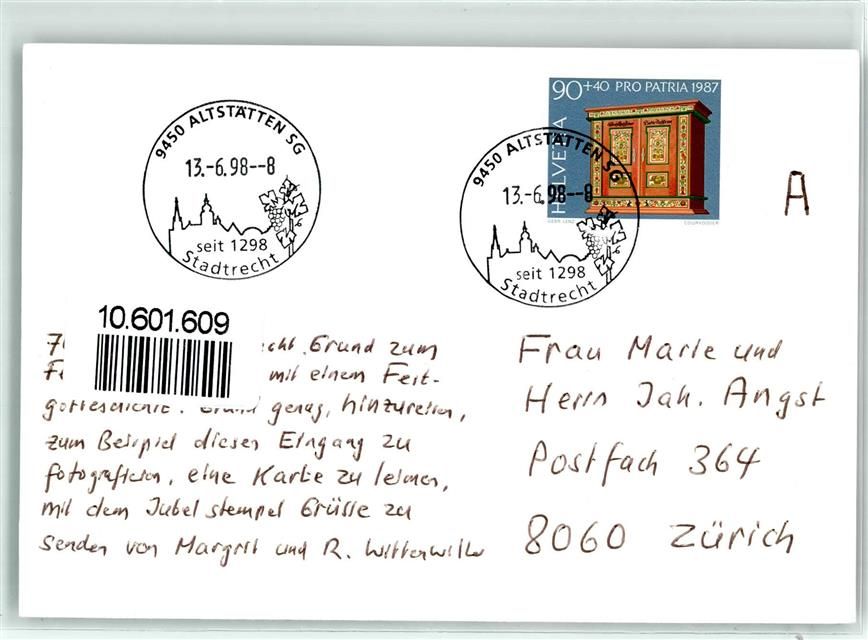 9450 ALTSTÄTTEN SG
13.-6.98--8
seit 1298
Stadtrecht
90+40 PRO PATRIA 1987
HELVETIA
COURVOISIER
9450 ALTSTÄTTEN SG
13.-6.98--8
seit 1298
Stadtrecht
A
10.601.609
Grund zum
mit einem Fest-
genug, hinzureisen,
zum Beispiel diesen Eingang zu
fotografieren, eine Karte zu
mit dem Jubelstempel Grüsse zu
senden von Margrit und R.
Frau Marie und
Herrn Jak. Angst
Postfach 364
8060 Zürich